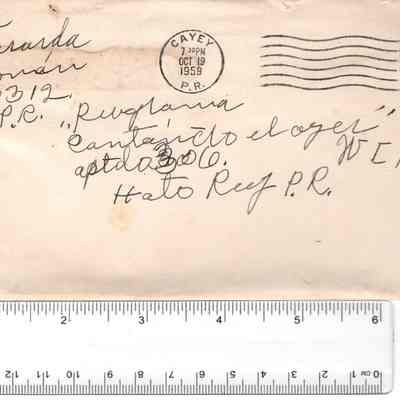 CAYEY
7 30 PM
OCT 19
1959
P.R.
312
P.R.
"Programa
Cantando el ayer"
aptdo 306.
Hato Rey P.R.
1 2 3 4 5 6
12 11 10 9 8 7 6 5 4 3 2 1 0 CM